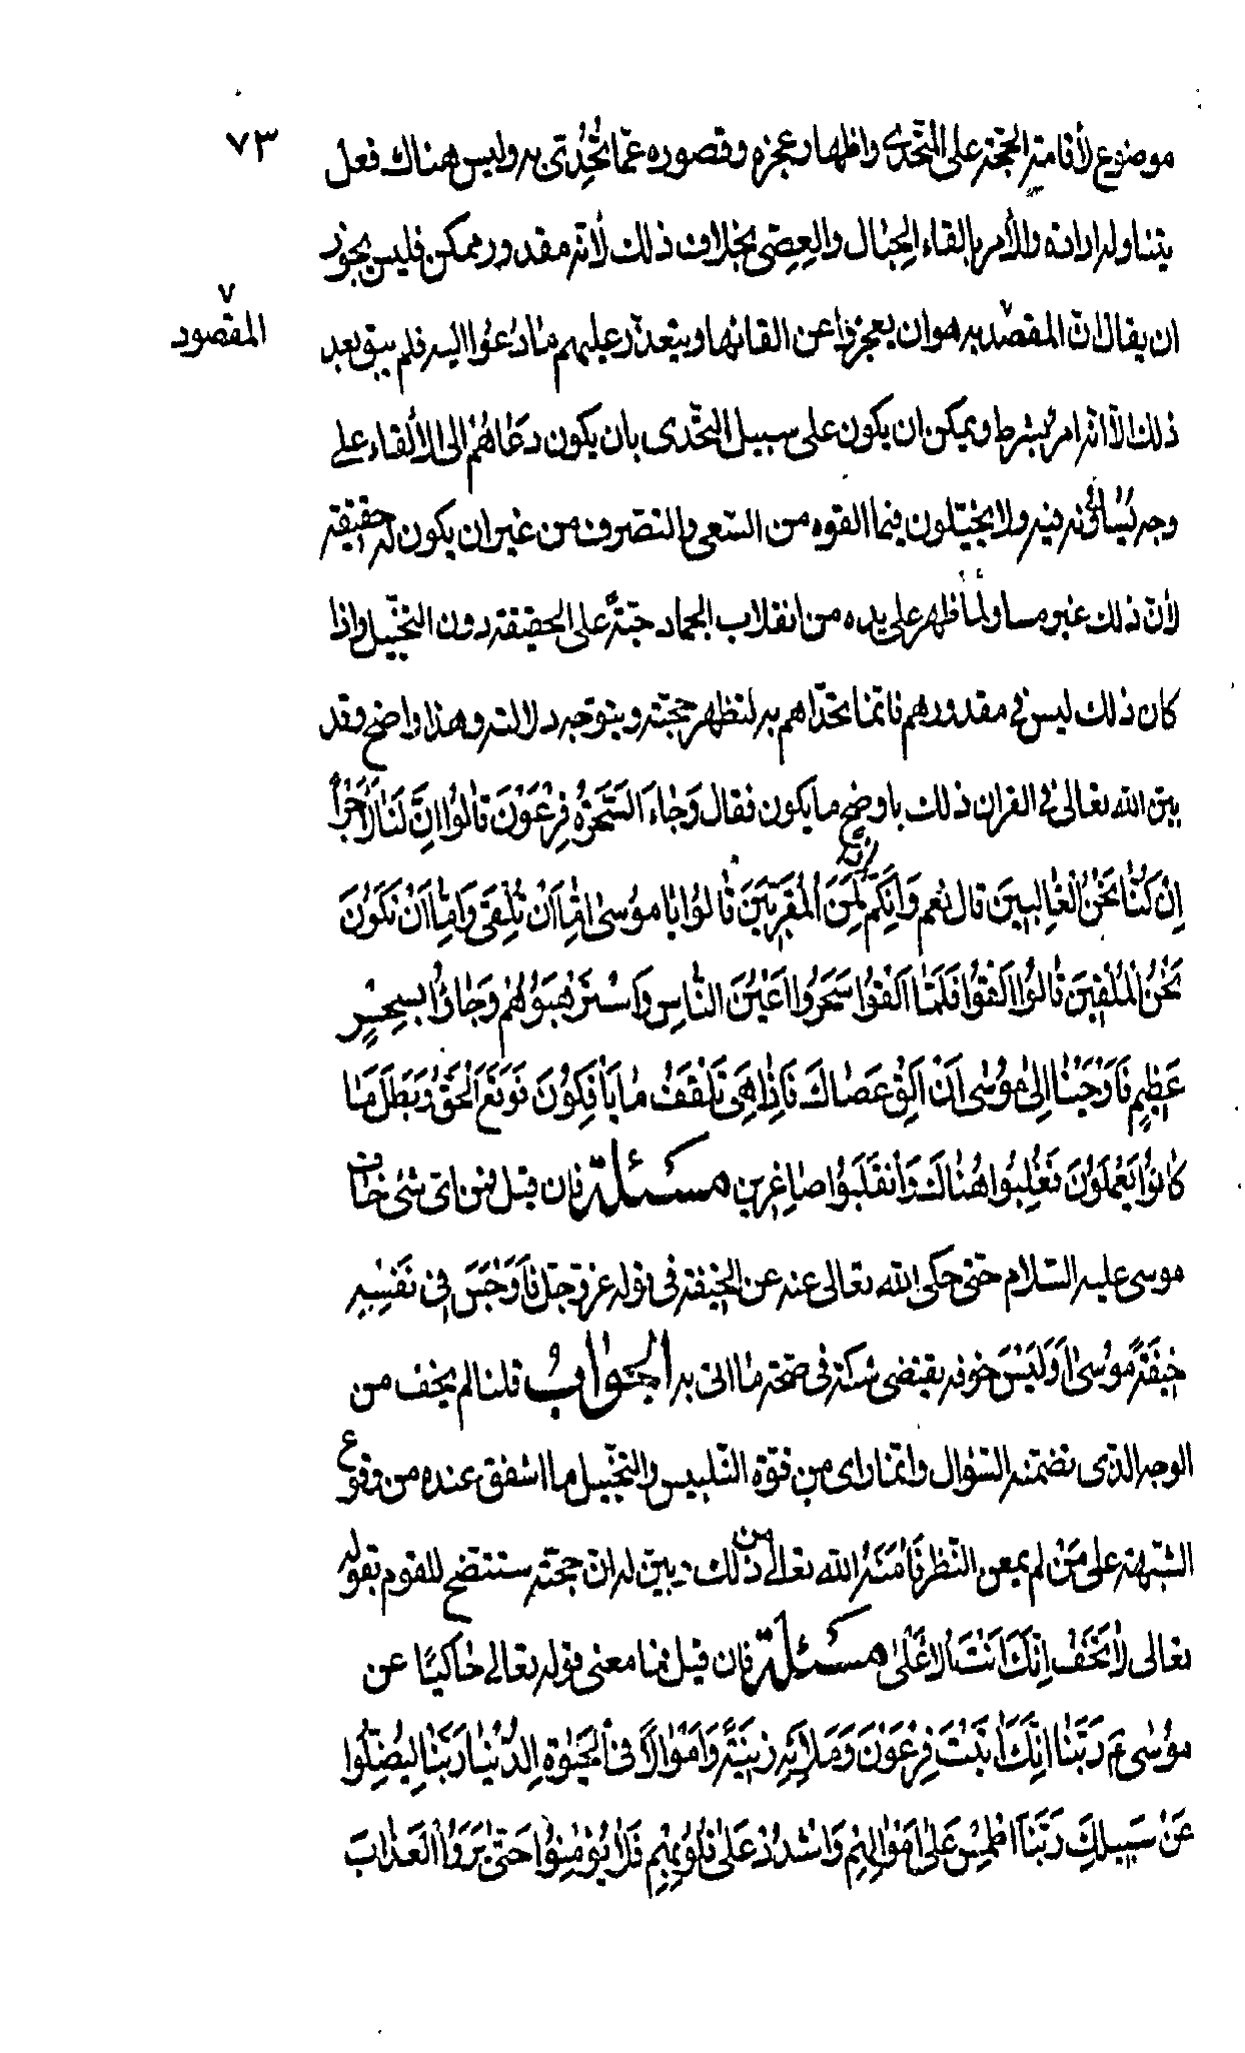 ٧٣
موضوع لأقامته الحجّة على المتحدّى واظهار عجزه وقصوره عمّا تُحُدِّىَ به وليس هناك فعل
يتناوله ارادته والأمر بالقاء الحِبٰال والعِصِىّ بخلاف ذلك لأنّه مقدور ممكن فليس يجوز
ان يقال انّ المقصد به هو ان يعجزوا عن القائها ويتعذّر عليهم مٰا دُعُوا اليه فلم يبق بعد
المقصود
ذلك الّا انّه امرٌ بشرط ويمكن ان يكون على سبيل التحّدى بان يكون دعٰاهُم الى الألقاء على
وجه يُسٰاوُونه فيه ولا يخيّلون فيما القوه من السّعى والتصّرف من غير ان يكون له حقيقة
لأنّ ذلك غير مساوٍ لما ظهر على يده من انقلاب الجماد حيّةً على الحقيقة دون التخّييل واذا
كان ذلك ليس في مقدورهم فانّما تحدّاهم به لتظهر حجّته ويتوّجه دلالته وهذا واضح وقد
بيّن الله تعالىٰ فى القران ذلك باوضح ما يكون فقال وَجٰاءَ السَّحَرَةُ فِرْعَوْنَ قٰالُوا اِنَّ لَنٰا لَأَجْراً
اِنْ كُنّٰا نَحْنُ الْغٰالِبِينَ قال نعم وَاِنَّكُمْ لَمِنَ الْمُقَرَّبِينَ قٰالُوا يٰا مُوسىٰ اِمّٰا اَنْ تُلْقِىَ وَاِمّٰا اَنْ نَكُونَ
نَحْنُ الْمُلْقِينَ قٰالُوا اَلْقُوا فَلَمّٰا اَلْقَوْا سَحَرُوا اَعْيُنَ النّٰاسِ وَاسْتَرْهَبُوهُمْ وَجٰاؤُا بِسِحْرٍ
عَظِيمٍ فَاَوْحَيْنٰا اِلىٰ مُوسٰى اَنْ اَلْقِ عَصٰاكَ فَاِذٰا هِىَ تَلْقَفُ مٰا يَأْفِكُونَ فَوَقَعَ الْحَقُّ وَبَطَلَ مٰا
كٰانُوا يَعْمَلُونَ فَغُلِبُوا هُنٰالِكَ وَانْقَلَبُوا صٰاغِرِين مسئلة فان قيل فمن اىّ شئ خٰاف
موسى عليه السّلام حتّى حكى الله تعالى عنه عن الخيفة فى قوله عزّ وجلّ فَاَوْجَسَ فِى نَفْسِهِ
خِيفَةً مُوسىٰ اَوَلَيْسَ خوفه يقتضى شكّه فى صحّة مٰا اتى به الجوٰابُ قلنا لم يخف من
الوجه الذّى تضمّنه السّؤال وانّما راى من قوّة التّلبيس والتّخييل ما اشفق عنده من وقوع
الشّبهة على مَنْ لم يمعن النّظر فَاٰمَنَهُ الله تعالى من ذلك وبيّن له انّ حجّته ستتضح للقوم بقوله
تعالى لٰا تَخَفْ اِنَّكَ اَنْتَ الْاَعْلىٰ مسئلة فان قيل فما معنى قوله تعالى حٰاكيًا عن
مُوسٰى ع رَبَّنٰا اِنَّكَ اٰتَيْتَ فِرْعَوْنَ وَمَلَأَهُ زِينَةً وَاَمْوٰالًا فى الْحَيٰوةِ الدُّنْيٰا رَبَّنٰا لِيُضِلُّوا
عَنْ سَبِيلِكَ رَبَّنَا اطْمِسْ عَلىٰ اَمْوٰالِهِمْ وَاشْدُدْ عَلىٰ قُلُوبِهِمْ فَلٰا يُؤْمِنُوا حَتّىٰ يَرَوُا الْعَذٰابَ